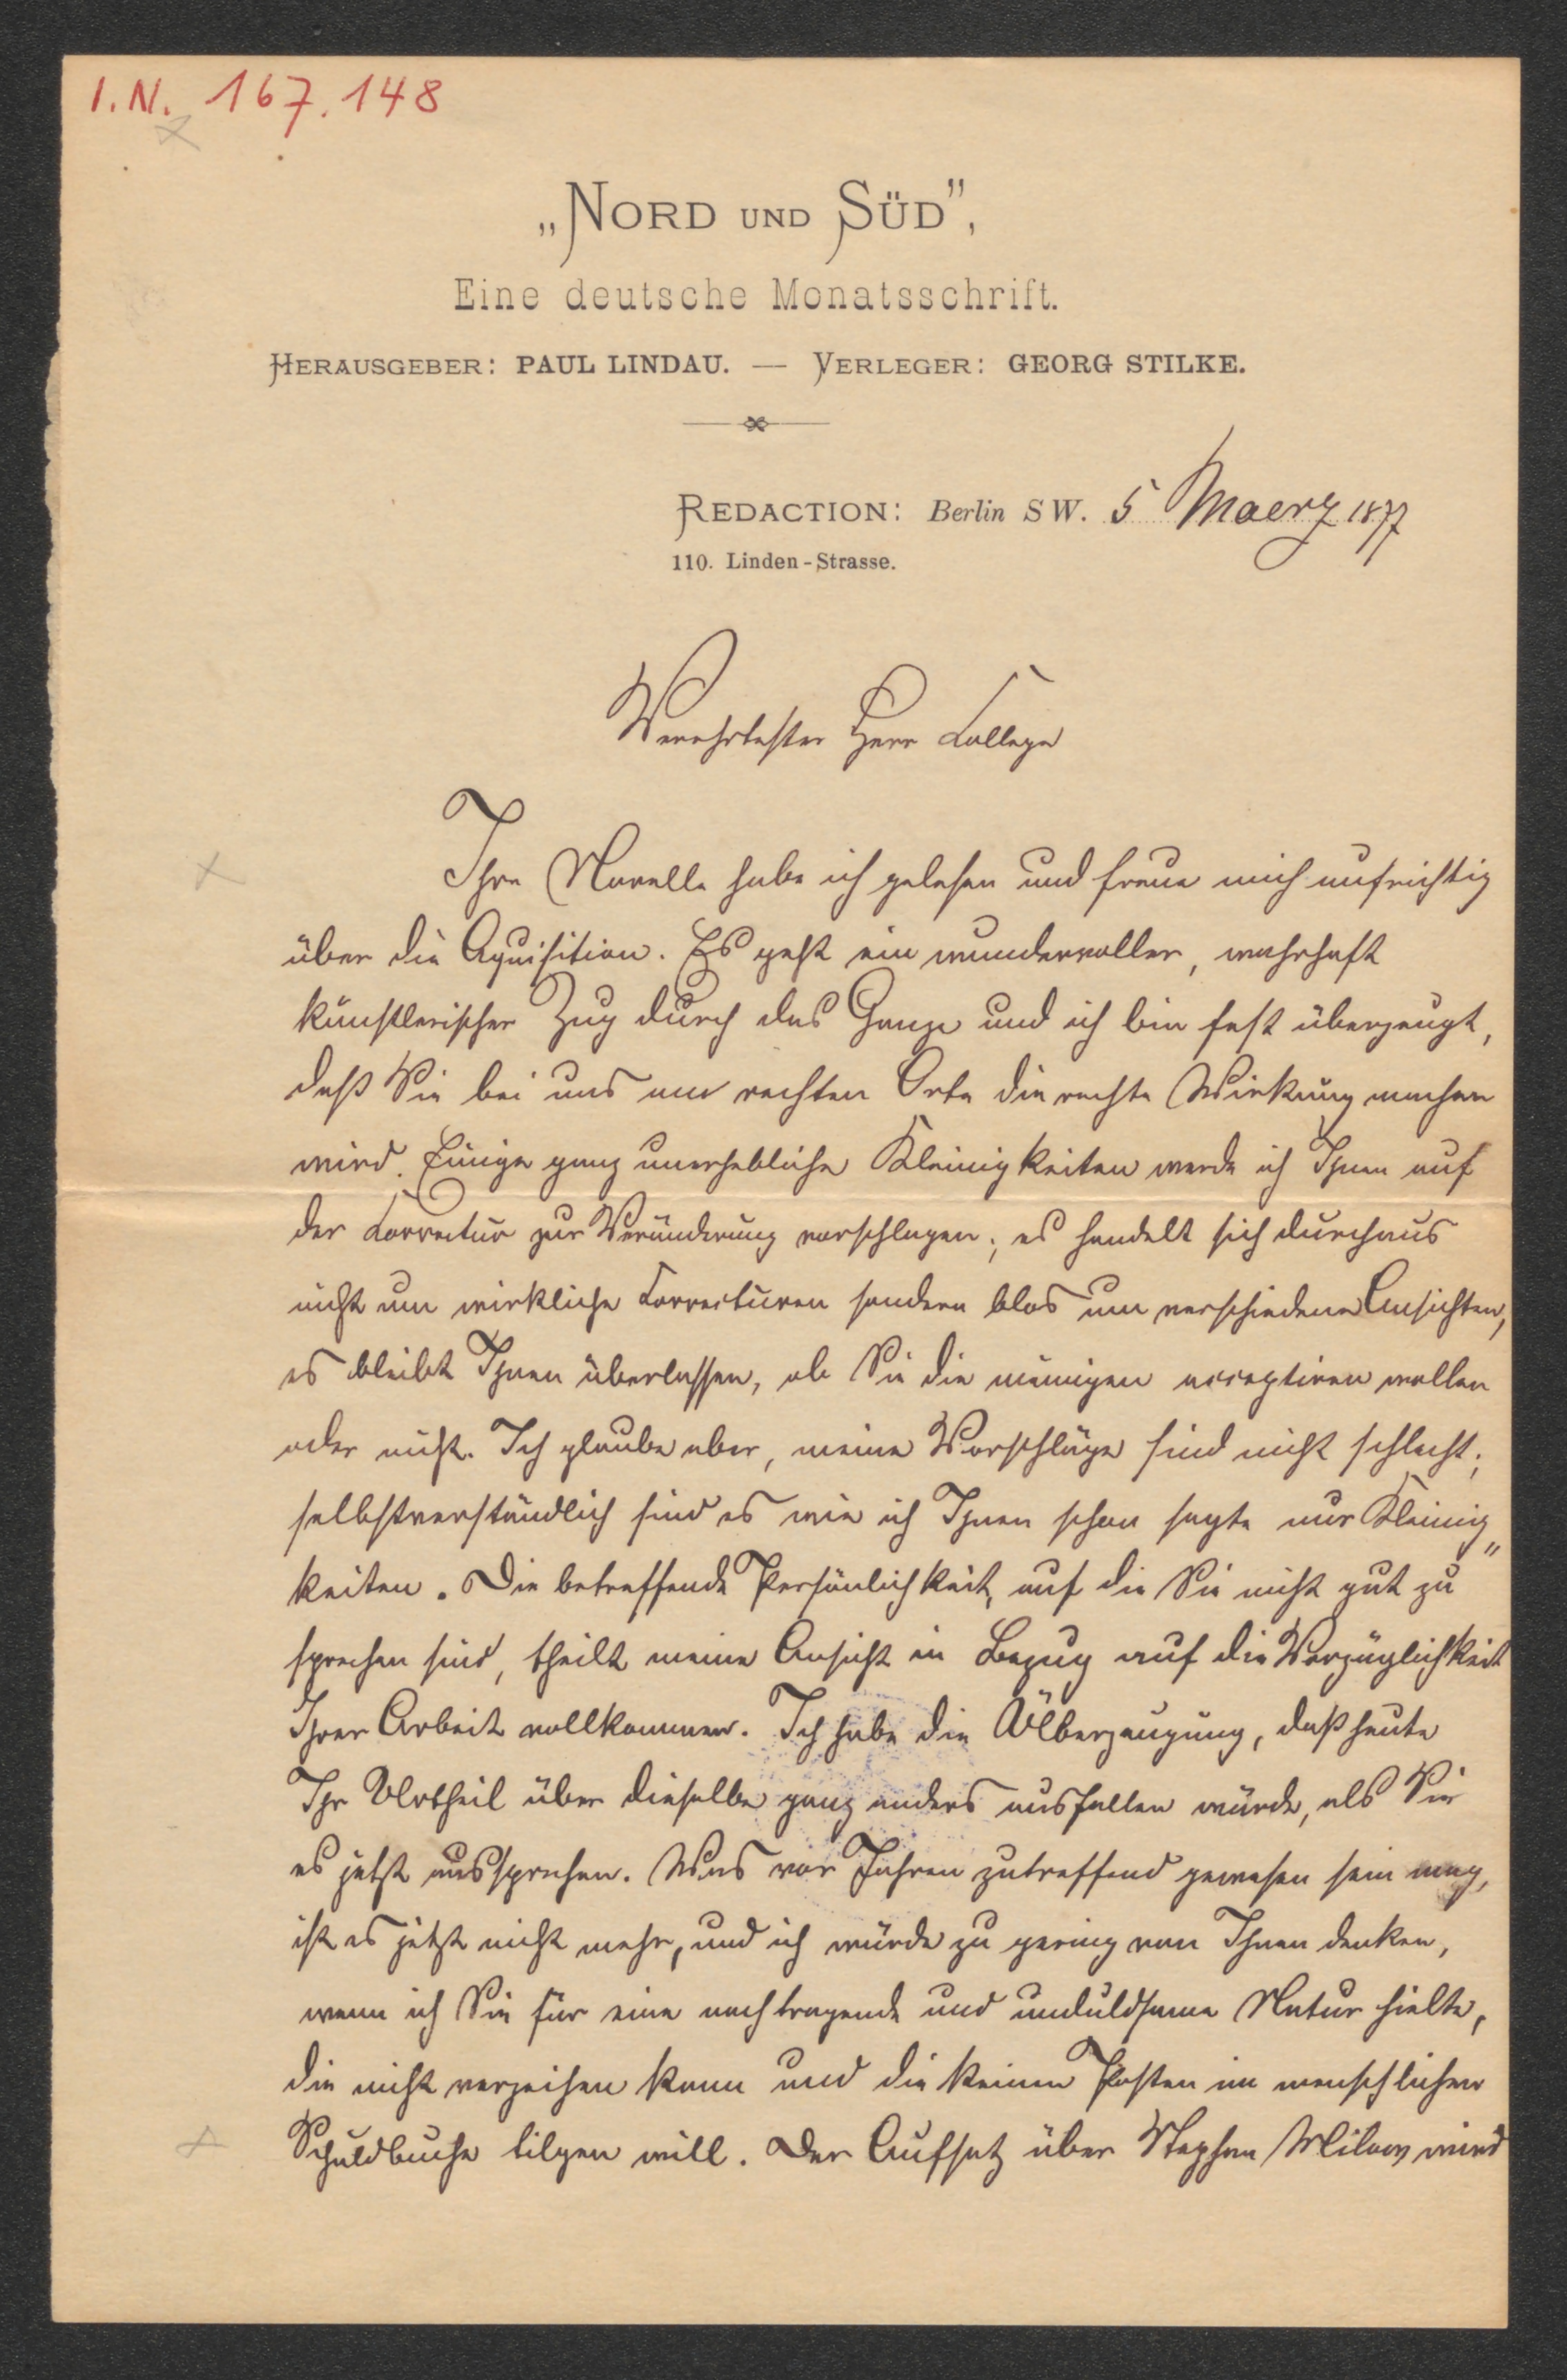 I. N. 167.148
„NORD UND SÜD",
Eine deutsche Monatsschrift.
HERAUSGEBER: PAUL LINDAU. — VERLEGER: GEORG STILKE.
REDACTION: Berlin SW. 5 Maerz 1877
110. Linden-Strasse.
Verehrtester Herr College
Ihre Novelle habe ich gelesen und freue mich aufrichtig
über die Aquisition. Es geht ein wundervoller, wahrhaft
künstlerischer Zug durch das Ganze und ich bin fest überzeugt,
daß Sie bei uns am rechten Orte die rechte Wirkung machen
wird. Einige ganz unerhebliche Kleinigkeiten werde ich Ihnen auf
der Correctur zur Veränderung vorschlagen; es handelt sich durchaus
nicht um wirkliche Correcturen sondern blos um verschiedene Ansichten,
es bleibt Ihnen überlassen, ob Sie die meinigen acceptiren wollen
oder nicht. Ich glaube aber, meine Vorschläge sind nicht schlecht;
selbstverständlich sind es wie ich Ihnen schon sagte nur Kleinig„
keiten. Die betreffende Persönlichkeit, auf die Sie nicht gut zu
sprechen sind, theilt meine Ansicht in Bezug auf die Vorzüglichkeit
Ihrer Arbeit vollkommen. Ich habe die Überzeugung, daß heute
Ihr Urtheil über dieselbe ganz anders ausfallen würde, als Sie
es jetzt aussprechen. Was vor Jahren zutreffend gewesen sein mag,
ist es jetzt nicht mehr, und ich würde zu gering von Ihnen denken,
wenn ich Sie für eine nachtragende und unduldsame Natur hielte,
die nicht verzeihen kann und die keinen Posten im menschlichen
Schuldbuche tilgen will. Der Aufsatz über Stephan Milow wird